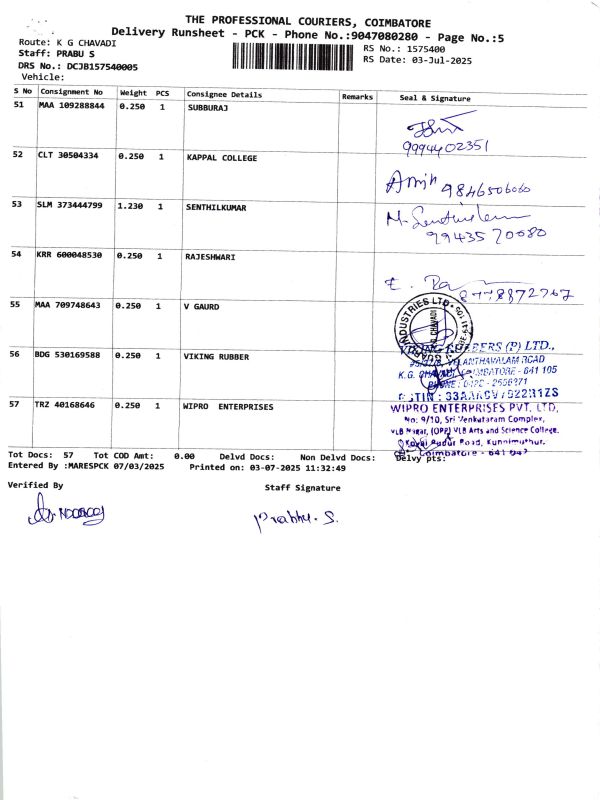 THE PROFESSIONAL COURIERS, COIMBATORE
Delivery Runsheet - PCK - Phone No.:9047080280 - Page No.:5
Route: K G CHAVADI
RS No.: 1575400
Staff: PRABU S
RS Date: 03-Jul-2025
DRS No.: DCJB157540005
Vehicle:
S No Consignment No Weight PCS Consignee Details Remarks Seal & Signature
51 MAA 109288844 0.250 1 SUBBURAJ
9994402351
52 CLT 30504334 0.250 1 KAPPAL COLLEGE
9846506060
53 SLM 373444799 1.230 1 SENTHILKUMAR
M. Senthilkum
99435 70080
54 KRR 600048530 0.250 1 RAJESHWARI
55 MAA 709748643 0.250 1 V GAURD
INDUSTRIES LTD
56 BDG 530169588 0.250 1 VIKING RUBBER
RUBBERS (P) LTD.,
VELANTHAVALAM ROAD
K.G. CHAVADI, COIMBATORE - 641 105
57 TRZ 40168646 0.250 1 WIPRO ENTERPRISES
WIPRO ENTERPRISES PVT. LTD,
No: 9/10, Sri Venkataram Complex,
VLB Nagar, (OPP) VLB Arts and Science College,
Kovai Pudur Road, Kunnimuthur,
Coimbatore - 641 047
Tot Docs: 57 Tot COD Amt: 0.00 Delvd Docs: Non Delvd Docs: Delvy pts:
Entered By :MARESPCK 07/03/2025 Printed on: 03-07-2025 11:32:49
Verified By
Staff Signature
Prabhu. S.